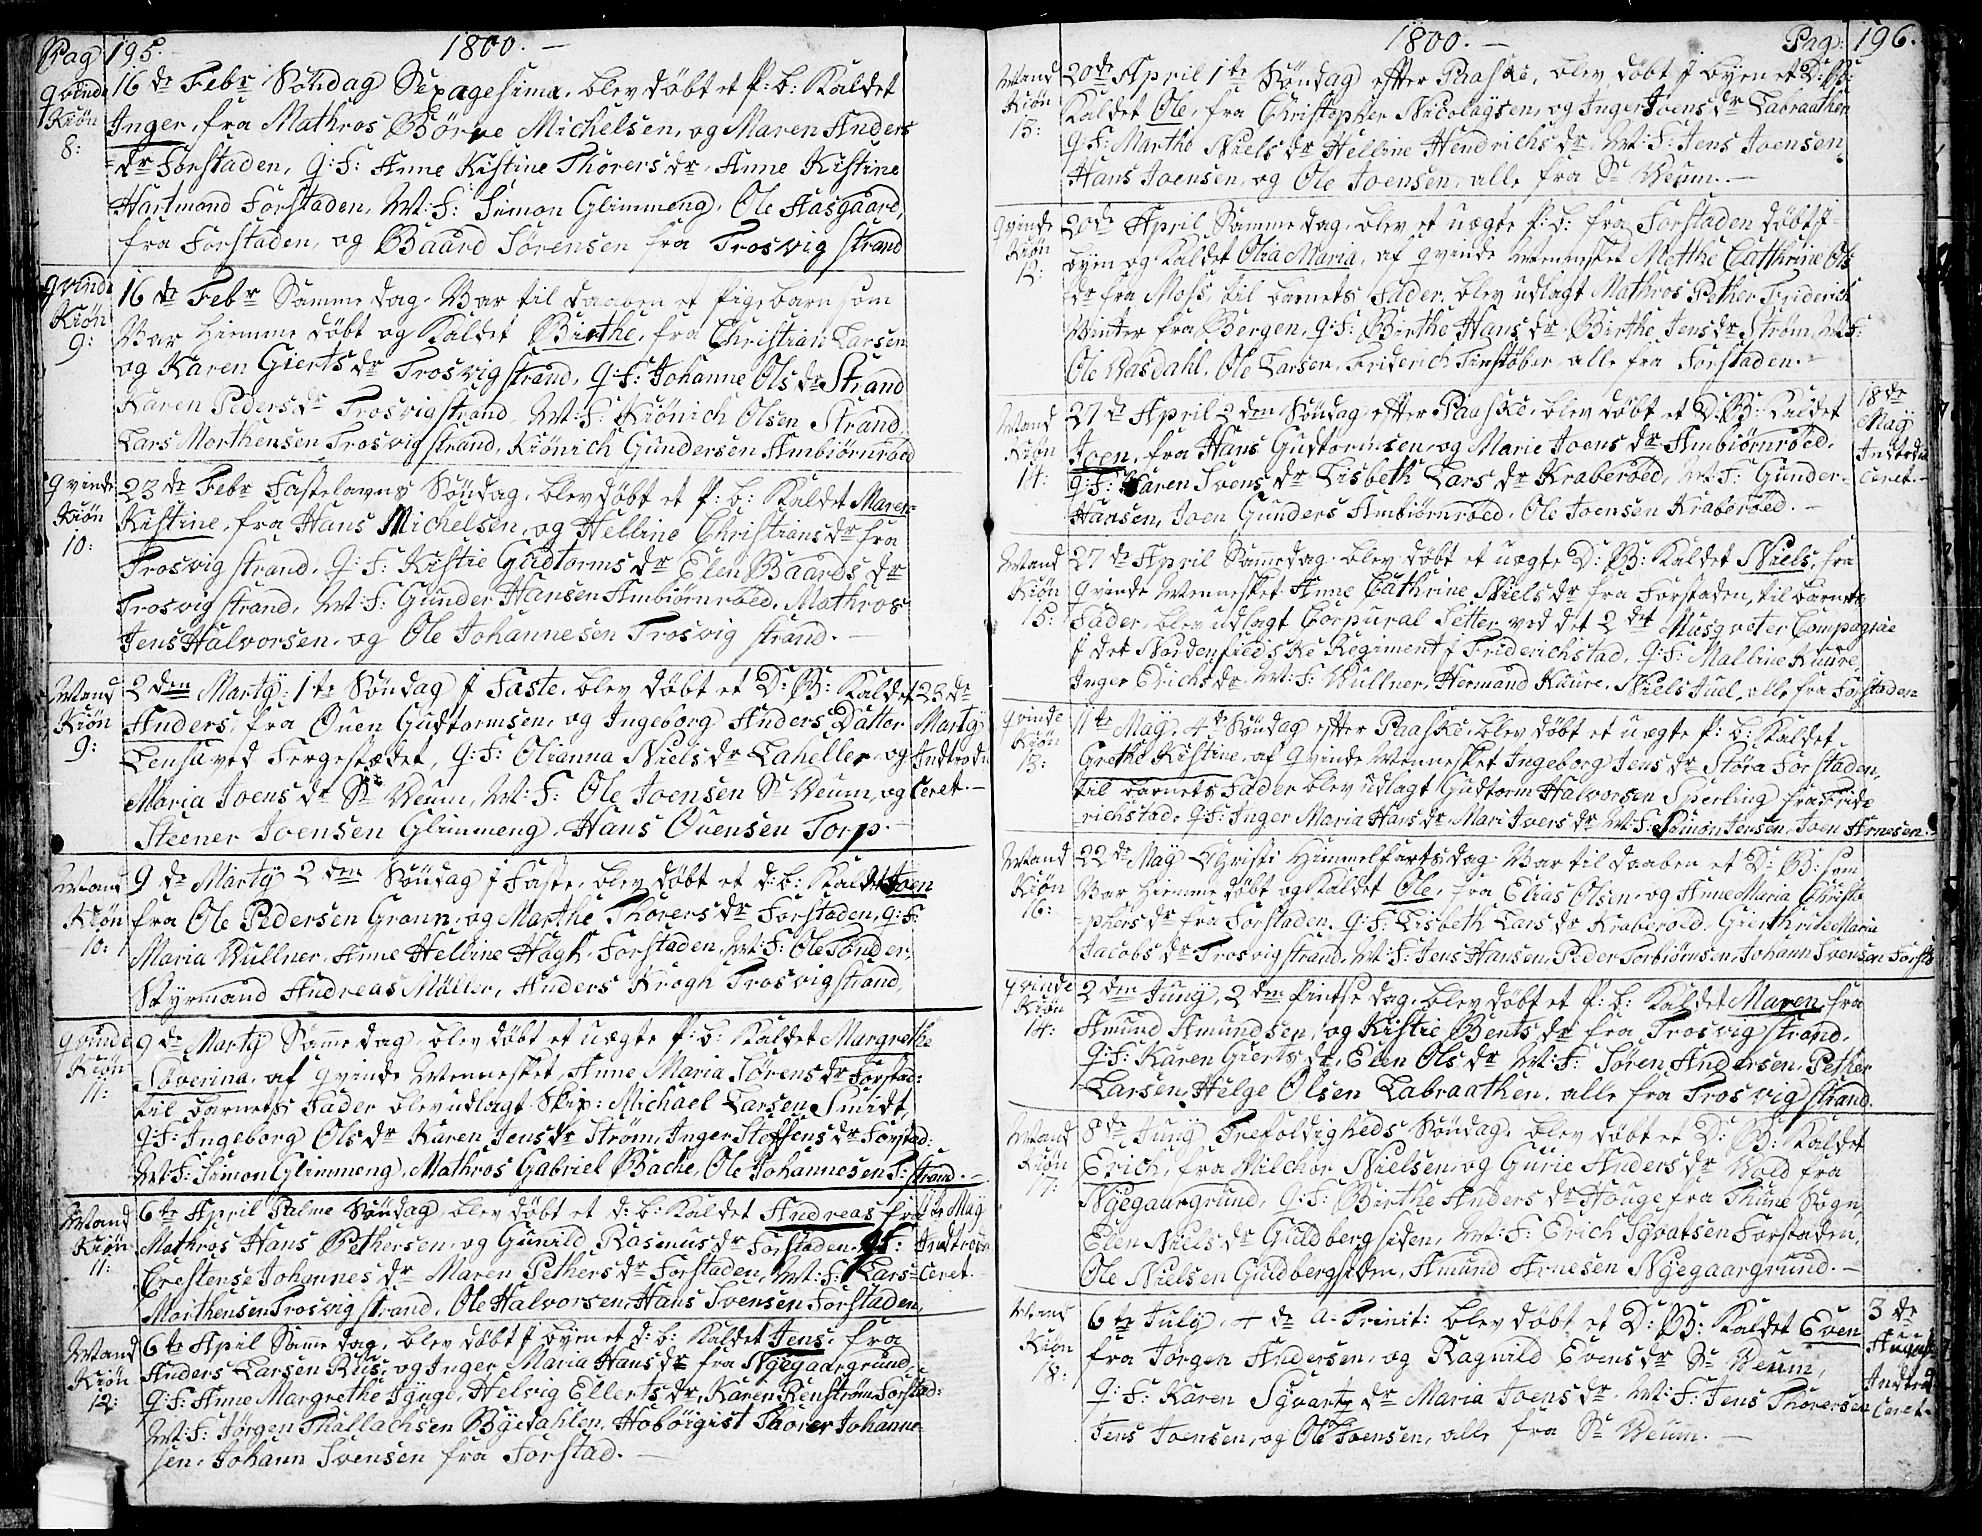 Pag 195. 1800. —
qvinde Kiön 8:
16 de Febr Söndag Sexagesima, blev döbt et p: b: Kaldet
Inger, fra Mathros Börre Michelsen, og Maren Anders
dr Forstaden, Q: F: Anne Kistine Thorers dr, Anne Kistine
Hartmand Forstaden, M: F: Simon Glimmeng, Ole Aasgaard,
fra Forstaden, og Baard Sörensen fra Trosvig strand
qvinde Kiön 9:
16 de Febr Samme dag, Var til daaben et pigebarn som
Var hiemme döbt og Kaldet Birthe, fra Christian Larsen
og Karen Gierts dr Trosvig strand, Q: F: Johanne Ols dr Strand
Karen Peders dr Trosvig strand, M: F: Kiönich Olsen Strand,
Lars Morthensen Trosvig strand, Kiönich Gundersen Ambiörnröed
qvinde Kiön 10:
23 de Febr Fastelavns Söndag, blev döbt et p: b: Kaldet Maren
Kistine, fra Hans Michelsen, og Helline Christians dr fra
Trosvig strand, Q: F: Kistie Gudtorms dr Elen Baards dr
Trosvig strand, M: F: Gunder Hansen Ambiörnröed, Mathros
Jens Halvorsen, og Ole Johannesen Trosvig strand. —
Mand Kiön 9:
2 den Marty: 1te Söndag i Faste, blev döbt et D: B: Kaldet
Anders, fra Ouen Gudtormsen, og Ingeborg Anders Datter
Lensu ved Fergestædet, Q: F: Olianna Niels dr Laheller, og
Maria Joens dr Sr Veum, M: F: Ole Joensen Sr Veum, og
Steener Joensen Glimmeng, Hans Ouensen Torp. —
23 de Marty Indtroduceret. —
Mand Kiön 10:
9 de Marty 2 den Söndag i Faste, blev döbt et d: b: Kaldet Joen
fra Ole Pedersen Grann, og Marthe Thorers dr Forstaden, Q: F:
Maria Wullner, Anne Helline Högh Forstaden, M: F: Ole Tönder,
Styrmand Andreas Möller, Anders Krogh Trosvig strand,
qvinde Kiön 11:
9 de Marty Samme dag, blev döbt et uægte p: b: Kaldet Margrethe
Severina, af qvinde Mennesket, Anne Maria Sörens dr Forstad:
til barnets Fader blev udlagt Skip: Michael Larsen Smidt,
Q: F: Ingeborg Ols dr Karen Jens dr Ström, Inger Stoffens dr Forstad:
M: F: Simon Glimmeng, Mathros Gabriel Bache, Ole Johannesen T: strand. —
Mand Kiön 11:
6 te April Palme Söndag blev döbt et d: b: Kaldet Andreas fra
Mathros Hans Pethersen, og Gunild Rasmus dr Forstaden, Q: F:
Crestense Johannes dr Maren Pethers dr Forstaden, M: F: Lars
Morthensen Trosvig strand, Ole Halvorsen, Hans Svensen Forstaden,
May Indtroduceret. —
Mand Kiön 12:
6 te April Samme dag, blev döbt i byen et d: b: Kaldet Jens, fra
Anders Larsen Rus, og Inger Maria Hans dr fra Nyegaargrund,
Q: F: Anne Margrethe Lynge, Helvig Ellerts dr, Karen Renström Forstad:
M: F: Jörgen Thallachsen Byedahlen, Hobörgist Thorer Johanne-
sen, Johann Svensen fra Forstad. —
1800. — Pag: 196.
Mand Kiön 13:
20 de April 1te Söndag efter Paaske, blev döbt i byen et D: B:
Kaldet Ole, fra Christopher Nicolaysen, og Inger Joens dr Labraathen
Q: F: Marthe Niels dr Helline Hendrichs dr, M: F: Jens Joensen,
Hans Joensen, og Ole Joensen, alle fra Sr Veum. —
qvinde Kiön 12:
20 de April Samme dag, blev et uægte p: b: fra Forstaden döbt i
byen og Kaldet Olia Maria, af qvinde Mennesket Methe Catthrine Ols
dr fra Moss, til barnets Fader, blev udlagt Mathros Pether Friderich
Winter fra Bergen, Q: F: Birthe Hans dr Birthe Jens dr Ström, M: F:
Ole Basdahl, Ole Larsen, Friderich Tinstöber alle fra Forstaden. —
Mand Kiön 14:
27 de April 2 den Söndag efter Paaske, blev döbt et D: B: Caldet
Joen, fra Hans Gudtormsen, og Marie Joens dr Ambiörnröed,
Q: F: Karen Svens dr Lisbeth Lars dr Kraberöed, M: F: Gunder
Hansen, Joen Gunders Ambiörnröed, Ole Joensen Kraberöed. —
18 de May Indtroduceret. —
Mand Kiön 15:
27 de April Samedag, blev döbt et uægte D: B: Kaldet Niels, fra
qvinde Mennesket Anne Cathrine Niels dr fra Forstaden, til barnets
Fader, blev udlagt Corpural Setter ved det 2 det Musqveter Compagnie
i det Nordenfieldske Regiment i Friderichstad, Q: F: Malline Kuure,
Inger Erichs dr, M: F: Wullner, Hermand Kuure, Niels Juel, alle fra Forstaden
qvinde Kiön 13:
11 te May, 4 de Söndag efter Paaske blev döbt et uægte p: b: Kaldet
Grethe Kistine, af qvinde Mennesket Ingeborg Jens dr Störa Forstaden,
til barnets Fader blev udlagt Gudtorm Halvorsen Sperling fra Fride
richstad, Q: F: Inger Maria Hans dr, Mari Ivers dr M: F: Simon Jensen, Joen Arnesen.
Mand Kiön 16:
22 de May Christi Himmelfartsdag Var til daaben et D: B: som
Var hiemme döbt og Kaldet Ole, fra Elias Olsen, og Anne Maria Christo
phers dr fra Forstaden, Q: F: Lisbeth Lars dr Kraberöed, Gierthrude Marie
Jacobs dr Trosvig strand, M: F: Jens Hansen, Peder Torbiörnsen, Johann Svensen Forst:
qvinde Kiön 14:
2 den Juny, 2 den Pintse dag, blev döbt et p: b: Kaldet Maren, fra
Amund Amundsen, og Kistie Bents dr fra Trosvig strand,
Q: F: Karen Gierts dr, Elen Ols dr M: F: Sören Andersen, Pether
Larsen, Helge Olsen Labraathen, alle fra Trosvig strand.
Mand Kiön 17:
8 de Juny Trefoldigheds Söndag, blev döbt et D: B: Kaldet
Erich, fra Milchor Nielsen, og Gurie Anders dr Wold fra
Nyegaargrund, Q: F: Birthe Anders dr Houge fra Thune Sogn,
Elen Niels dr Guldbergsiden, M: F: Erich Syvatsen Forstaden,
Ole Nielsen Guldbergsiden, Amund Arnesen Nyegaargrund. —
Mand Kiön 18:
6 te July, 4 de a. Trinit: blev döbt et D: B: Kaldet Even
fra Jörgen Andersen, og Ragnild Evens dr Sr Veum,
Q: F: Karen Syvartz dr Maria Joens dr, M: F: Jens Thoresen
Jens Joensen, og Ole Joensen, alle fra Sr Veum. —
3 de August Indtroduceret.